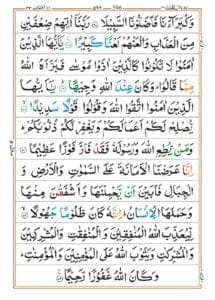 وَكُبَرَآءَنَا فَاَضَلُّوْنَا السَّبِيْلَا ۞ رَبَّنَآ اٰتِهِمْ ضِعْفَيْنِ
مِنَ الْعَذَابِ وَالْعَنْهُمْ لَعْنًا كَبِيْرًا ۞ يٰٓاَيُّهَا الَّذِيْنَ
اٰمَنُوْا لَا تَكُوْنُوْا كَالَّذِيْنَ اٰذَوْا مُوْسٰى فَبَرَّاَهُ اللّٰهُ
مِمَّا قَالُوْا وَكَانَ عِنْدَ اللّٰهِ وَجِيْهًا ۞ يٰٓاَيُّهَا
الَّذِيْنَ اٰمَنُوا اتَّقُوا اللّٰهَ وَقُوْلُوْا قَوْلًا سَدِيْدًا ۞
يُّصْلِحْ لَكُمْ اَعْمَالَكُمْ وَيَغْفِرْ لَكُمْ ذُنُوْبَكُمْ
وَمَنْ يُّطِعِ اللّٰهَ وَرَسُوْلَهٗ فَقَدْ فَازَ فَوْزًا عَظِيْمًا ۞
اِنَّا عَرَضْنَا الْاَمَانَةَ عَلَى السَّمٰوٰتِ وَالْاَرْضِ وَ
الْجِبَالِ فَاَبَيْنَ اَنْ يَّحْمِلْنَهَا وَاَشْفَقْنَ مِنْهَا
وَحَمَلَهَا الْاِنْسَانُ اِنَّهٗ كَانَ ظَلُوْمًا جَهُوْلًا ۞
لِّيُعَذِّبَ اللّٰهُ الْمُنٰفِقِيْنَ وَالْمُنٰفِقٰتِ وَالْمُشْرِكِيْنَ
وَالْمُشْرِكٰتِ وَيَتُوْبَ اللّٰهُ عَلَى الْمُؤْمِنِيْنَ وَالْمُؤْمِنٰتِ
وَكَانَ اللّٰهُ غَفُوْرًا رَّحِيْمًا ۞